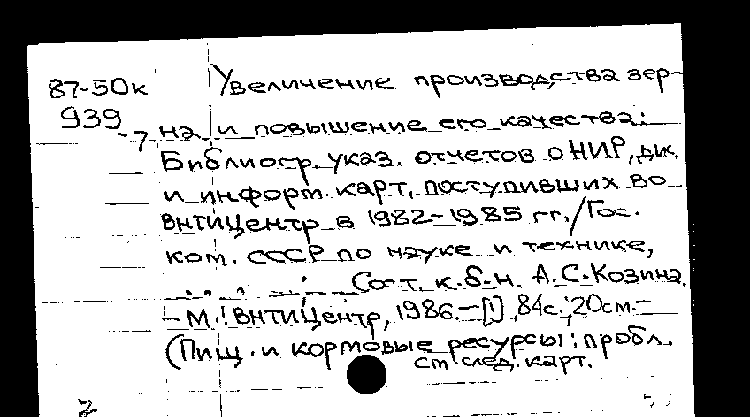 87-50к
939
Увеличение производства зер-
-7 на и повышение его качества:
Библиогр. указ. отчетов о НИР, дис.
и информ. карт, поступивших во
ВНТИЦентр в 1982-1985 гг./Гос.
ком. СССР по науке и технике,
Сост. к.б.н. А.С.Козина.
- М.: ВНТИЦентр, 1986.-[1], 84с.; 20см.-
(Пищ. и кормовые ресурсы: пробл.
см след. карт.
2